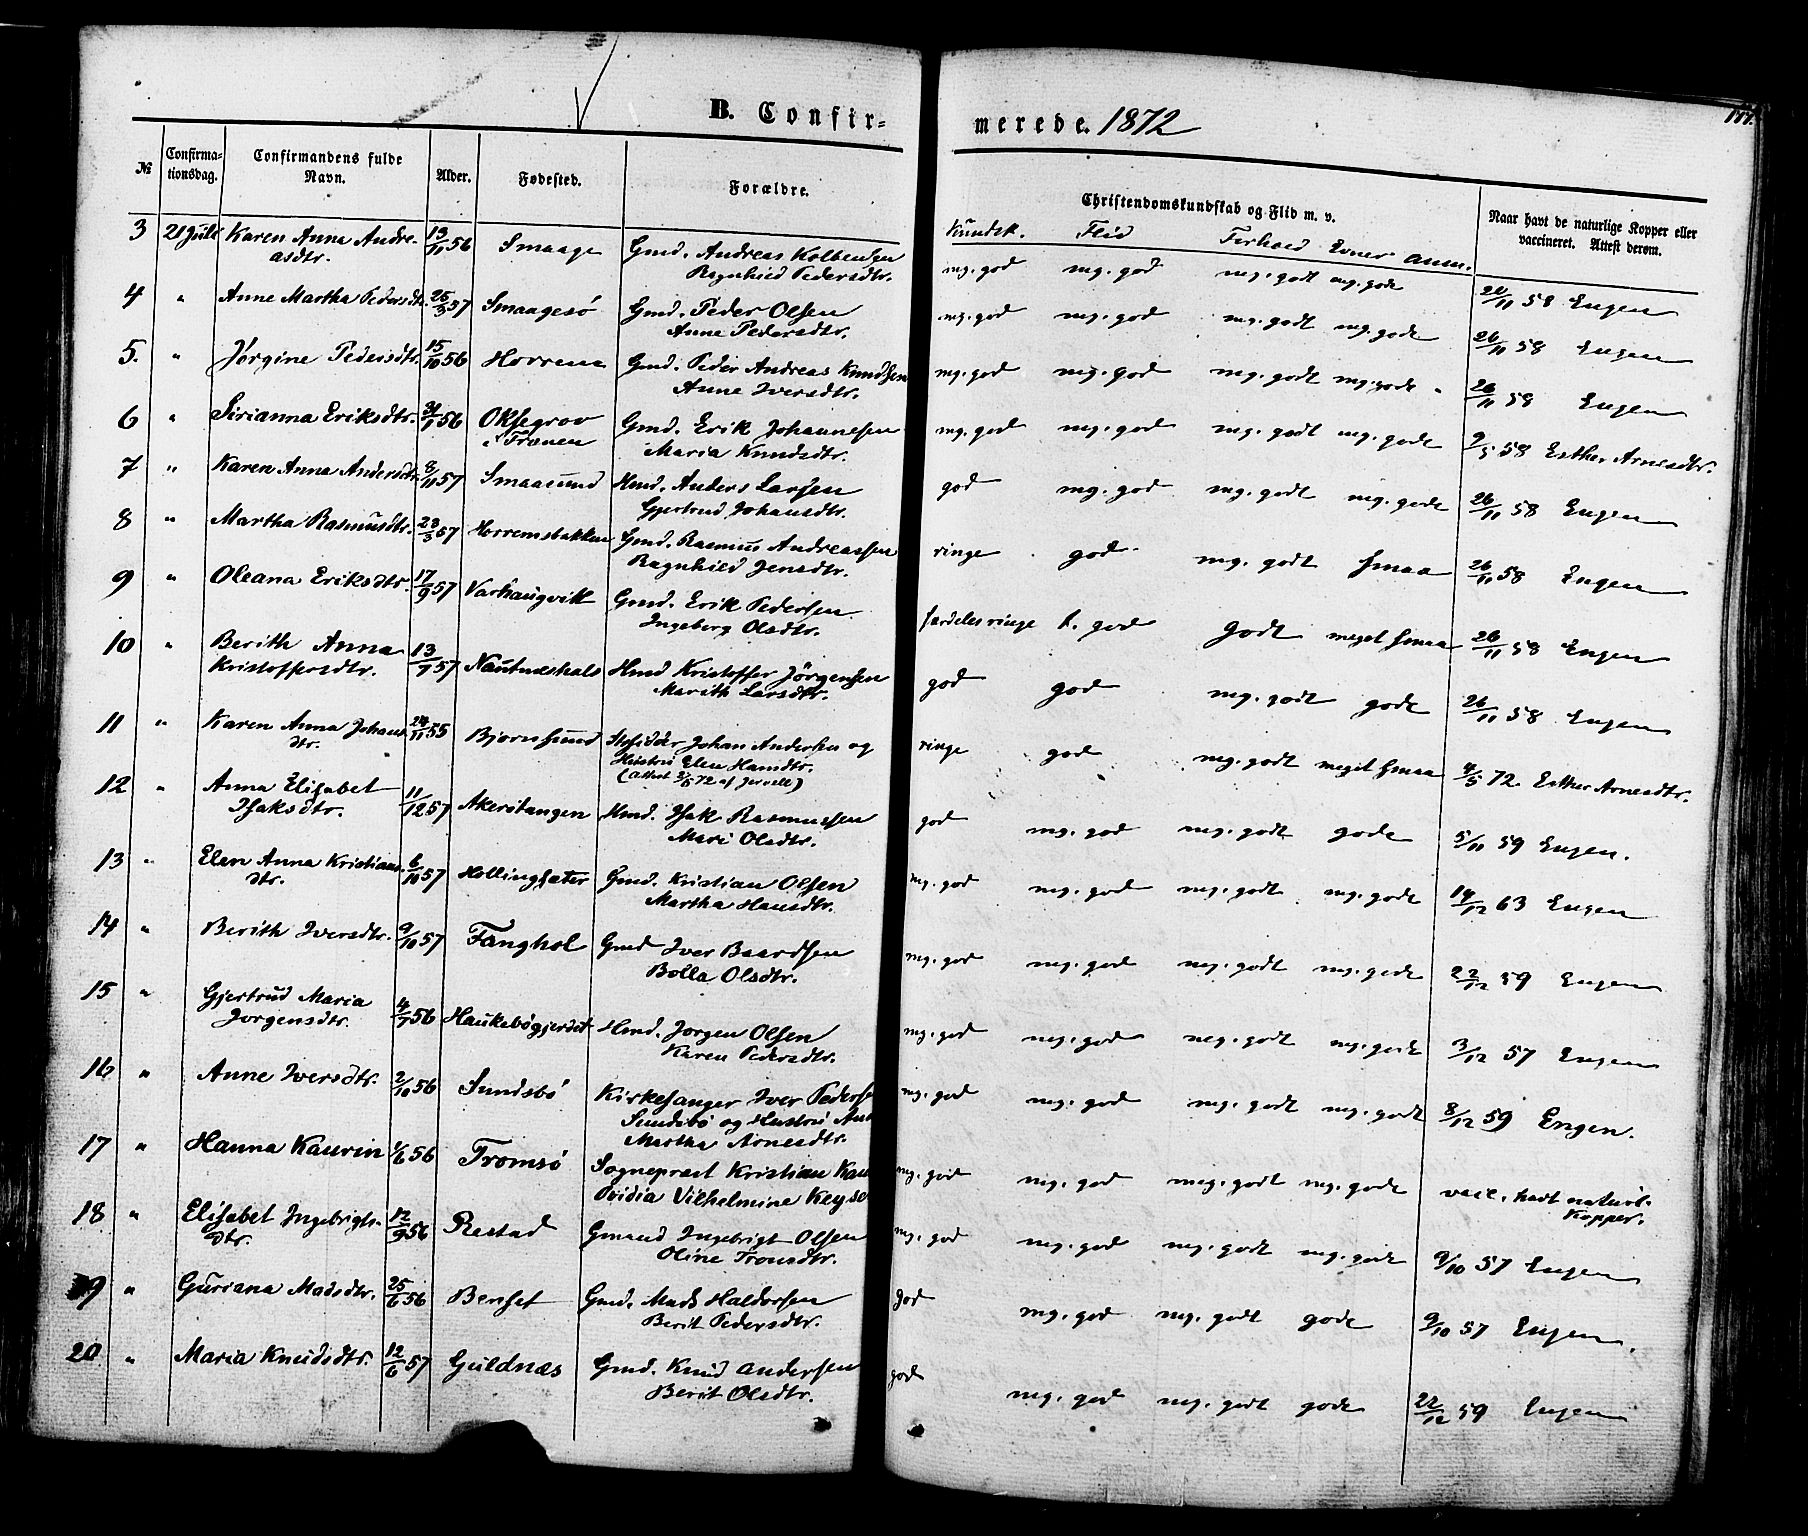 B. Confir-
merede. 1872
177.
№ Confirma-tionsdag. Confirmandens fulde Navn. Alder. Fødested. Forældre. Christendomskundskab og Flid m. v. Naar havt de naturlige Kopper eller vaccineret. Attest derom.
Kundsk. Flid Forhold Evner Anm.
3 21 Juli Karen Anna Andre- 13/11 56 Smaage Gmd. Andreas Kolbensen mg. god mg. god mg. godt mg. gode 26/11 58 Engen
asdtr. Ragnhild Pedersdtr.
4 " Anne Martha Pedersdtr. 25/3 57 Smaagesö Gmd. Peder Olsen mg. god mg. god mg. godt mg. gode 26/11 58 Engen
Anne Pedersdtr.
5. " Jørgine Pedersdtr. 15/10 56 Horrem Gmd. Peder Andreas Knudsen mg. god mg. god mg. godt mg. gode " 26/11 58 Engen
Anne Iversdtr.
6 " Sirianna Eriksdtr. 56 Oksegrov Gmd. Erik Johannesen mg. god mg. god mg. godt mg. gode 9/5 58 Esther Arnesdtr.
i Fronen Maria Knudsdtr.
7 " Karen Anna Andersdtr. 8/11 57 Smaasund Hmd. Anders Larsen god mg. god mg. godt mg. gode 26/11 58 Engen
Gjertrud Johansdtr.
8 " Martha Rasmusdtr. 23/3 57 Horremsbakken Gmd. Rasmus Andreassen ringe god mg. godt smaa 26/11 58 Engen
Ragnhild Jensdtr.
9 " Oleana Eriksdtr. 17/9 57 Varhaugvik Gmd. Erik Pedersen særdeles ringe t. god godt meget smaa 26/11 58 Engen
Ingeborg Olsdtr.
10 " Berith Anna 13/7 57 Nautneshals Hmd Kristoffer Jørgensen god god mg. godt gode 26/11 58 Engen
Kristoffersdtr. Marith Larsdtr.
11 " Karen Anna Johans 24/11 55 Bjornsund Johan Andersen og ringe god mg. godt meget smaa 4/5 72 Esther Arnesdtr.
dtr. Hustru Elen Hansdtr.
(Attest 2/5 72 af)
12 " Anna Elisabet 11/12 57 Akerstangen Hmd. Isak Rasmussen god mg. god mg. godt gode 5/11 59 Engen.
Isaksdtr. Mari Olsdtr.
13 " Elen Anna Kristians 6/10 57 Hollingsæter Gmd. Kristian Olsen mg. god mg. god mg. godt mg. gode 14/12 63 Engen
dtr. Martha Hansdtr.
14 " Berith Iversdtr. 9/10 57 Fanghol Gmd Iver Baardsen mg. god mg. god mg. godt mg. gode 22/12 59 Engen
Bolla Olsdtr.
15 " Gjertrud Maria 4/7 56 Haukebøgjerdet Hmd. Jorgen Olsen mg. god mg. god mg. godt mg. gode 3/12 57 Engen
Jorgensdtr. Karen Pedersdtr.
16 " Anne Iversdtr. 2/10 56 Sundsbö Kirkesanger Iver Pedersen mg. god mg. god mg. godt mg. godt 8/12 59 Engen.
Sundsbö og Hustru Ane
Martha Arnesdtr.
17 " Hanna Kaurin 1/6 56 Tromsö Sogneprest Kristian Kau mg. god mg. god mg. godt mg. gode vacc. havt naturl.
Ovidia Vilhelmine Keyse Kopper.
18 " Elisabet Ingebrigts- 12/9 56 Restad Gmand Ingebrigt Olsen mg. god mg. god mg. godt mg. gode 9/10 57 Engen
dtr. Oline Tronsdtr.
19 " Guriana Madsdtr. 25/6 56 Benset Gmd. Mads Haldorsen god mg. god mg. godt gode 9/10 57 Engen.
Berit Pedersdtr.
20 " Maria Knudsdtr. 12/6 57 Guldnæs Gmd. Knud Andersen god mg. god mg. godt gode 22/12 59 Engen
Berit Olsdtr.